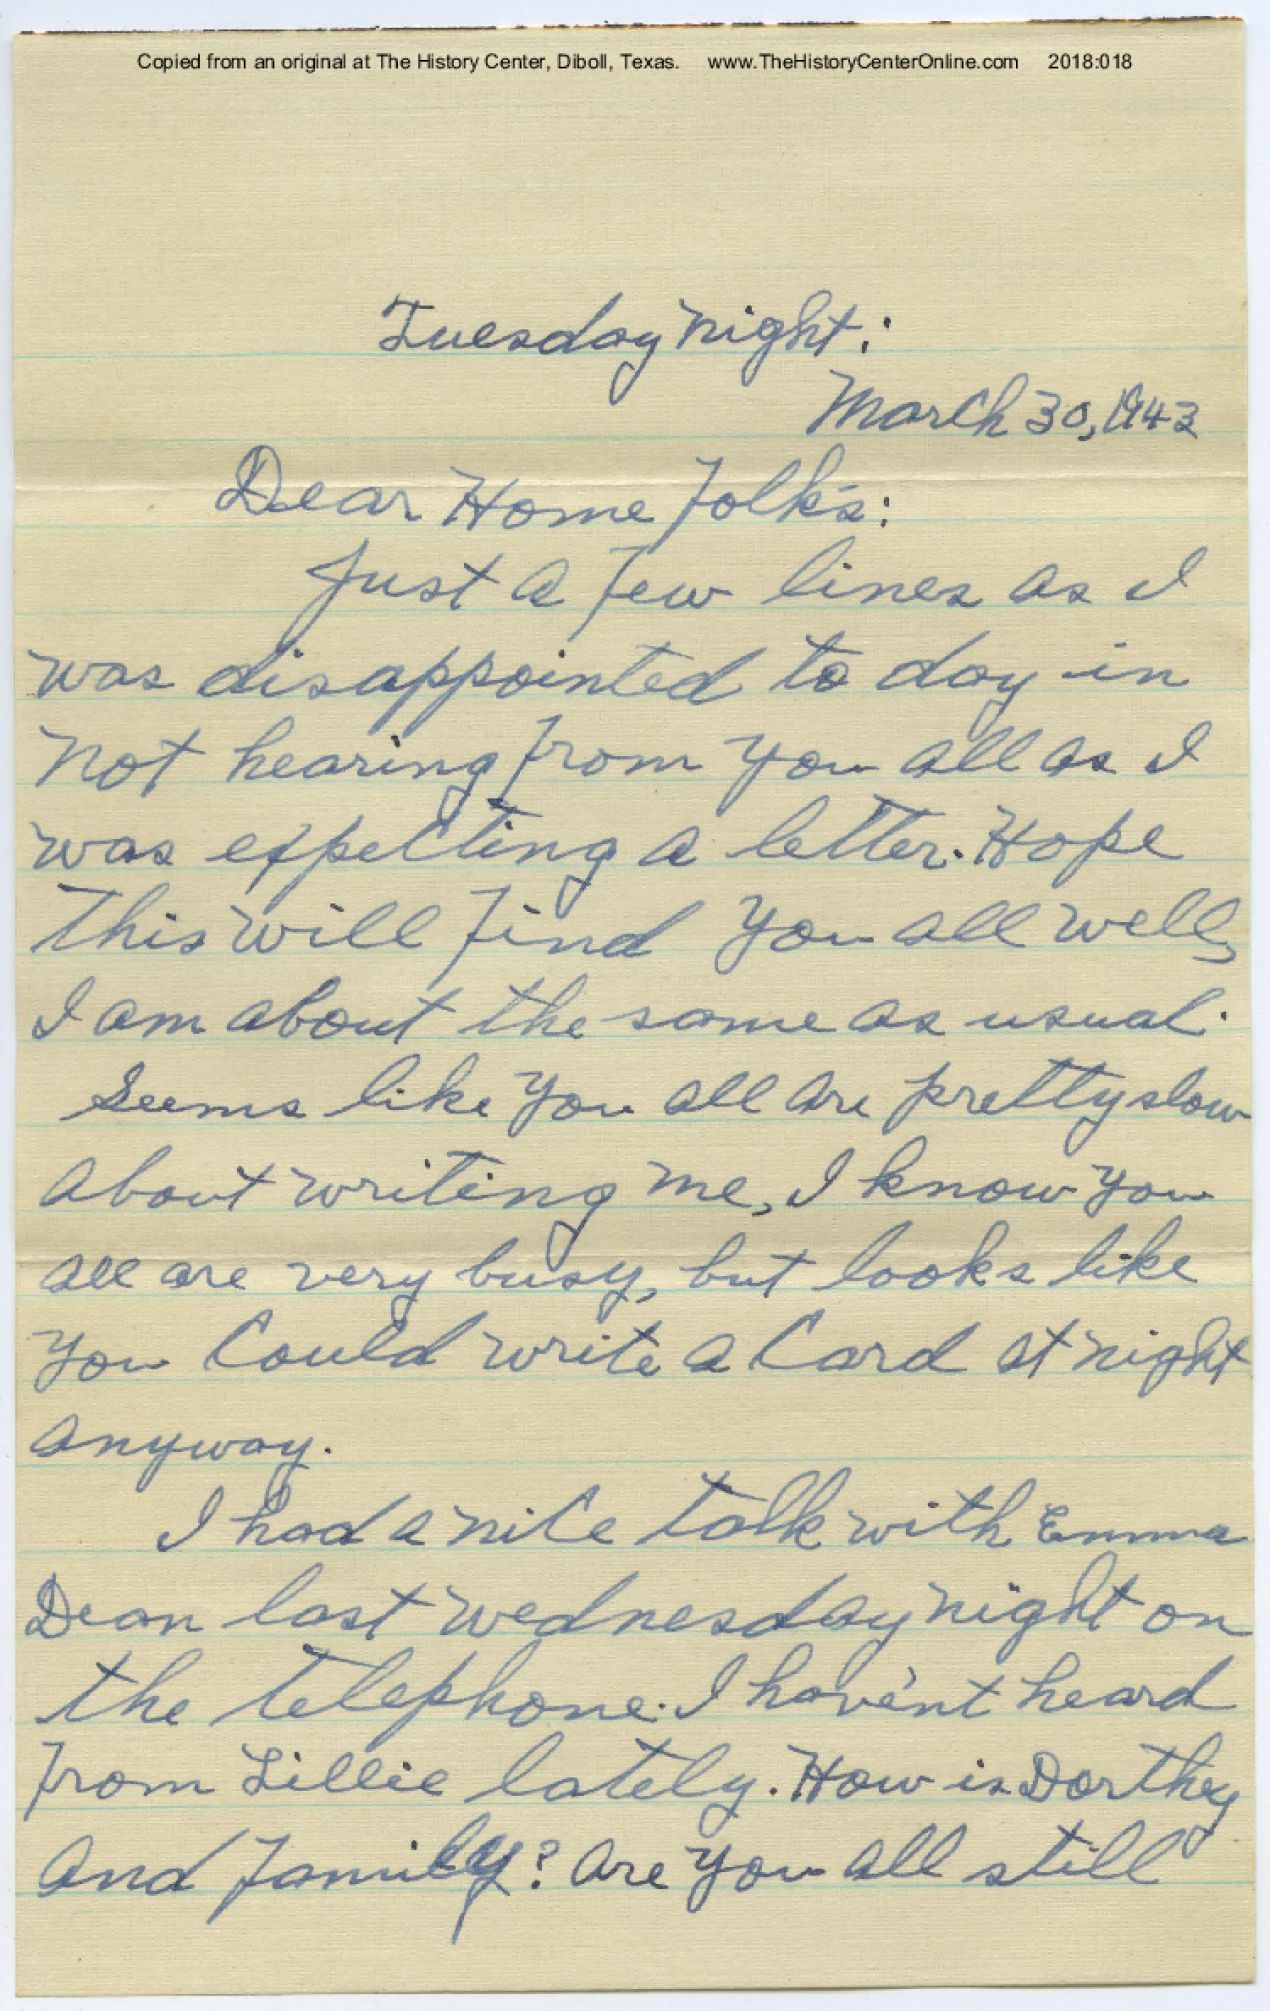 Copied from an original at The History Center, Diboll, Texas. www.TheHistoryCenterOnline.com 2018:018
Tuesday night:
March 30, 1943
Dear Home Folk's:
Just a few lines as I
was disappointed to day in
not hearing from you all as I
was expecting a letter. Hope
this will find you all well,
I am about the same as usual.
Seems like you all are pretty slow
about writing me, I know you
all are very busy, but looks like
you could write a card at night
anyway.
I had a nice talk with Emma
Dean last wednesday night on
the telephone. I have'nt heard
from Lillie lately. How is Dorthey
and family? are you all still